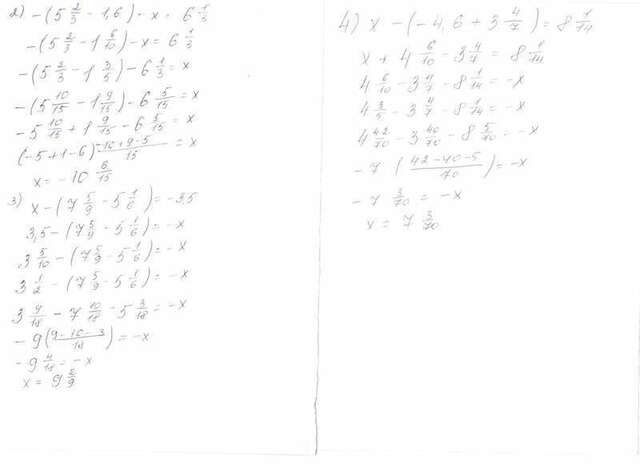 2) -(5 2/3 - 1,6) - x = 6 1/3
-(5 2/3 - 1 6/10) - x = 6 1/3
-(5 2/3 - 1 3/5) - 6 1/3 = x
-(5 10/15 - 1 9/15) - 6 5/15 = x
-5 10/15 + 1 9/15 - 6 5/15 = x
(-5+1-6) -10+9-5/15 = x
x = -10 6/15
3) x - (7 5/9 - 5 1/6) = -3,5
3,5 - (7 5/9 - 5 1/6) = -x
3 5/10 - (7 5/9 - 5 1/6) = -x
3 1/2 - (7 5/9 - 5 1/6) = -x
3 9/18 - 7 10/18 - 5 3/18 = -x
-9 (9-10-3/18) = -x
-9 4/18 = -x
x = 9 2/9
4) x - (-4,6 + 3 4/7) = 8 1/14
x + 4 6/10 - 3 4/7 = 8 1/14
4 6/10 - 3 4/7 - 8 1/14 = -x
4 3/5 - 3 4/7 - 8 1/14 = -x
4 42/70 - 3 40/70 - 8 5/70 = -x
-7 (42-40-5/70) = -x
-7 3/70 = -x
x = 7 3/70